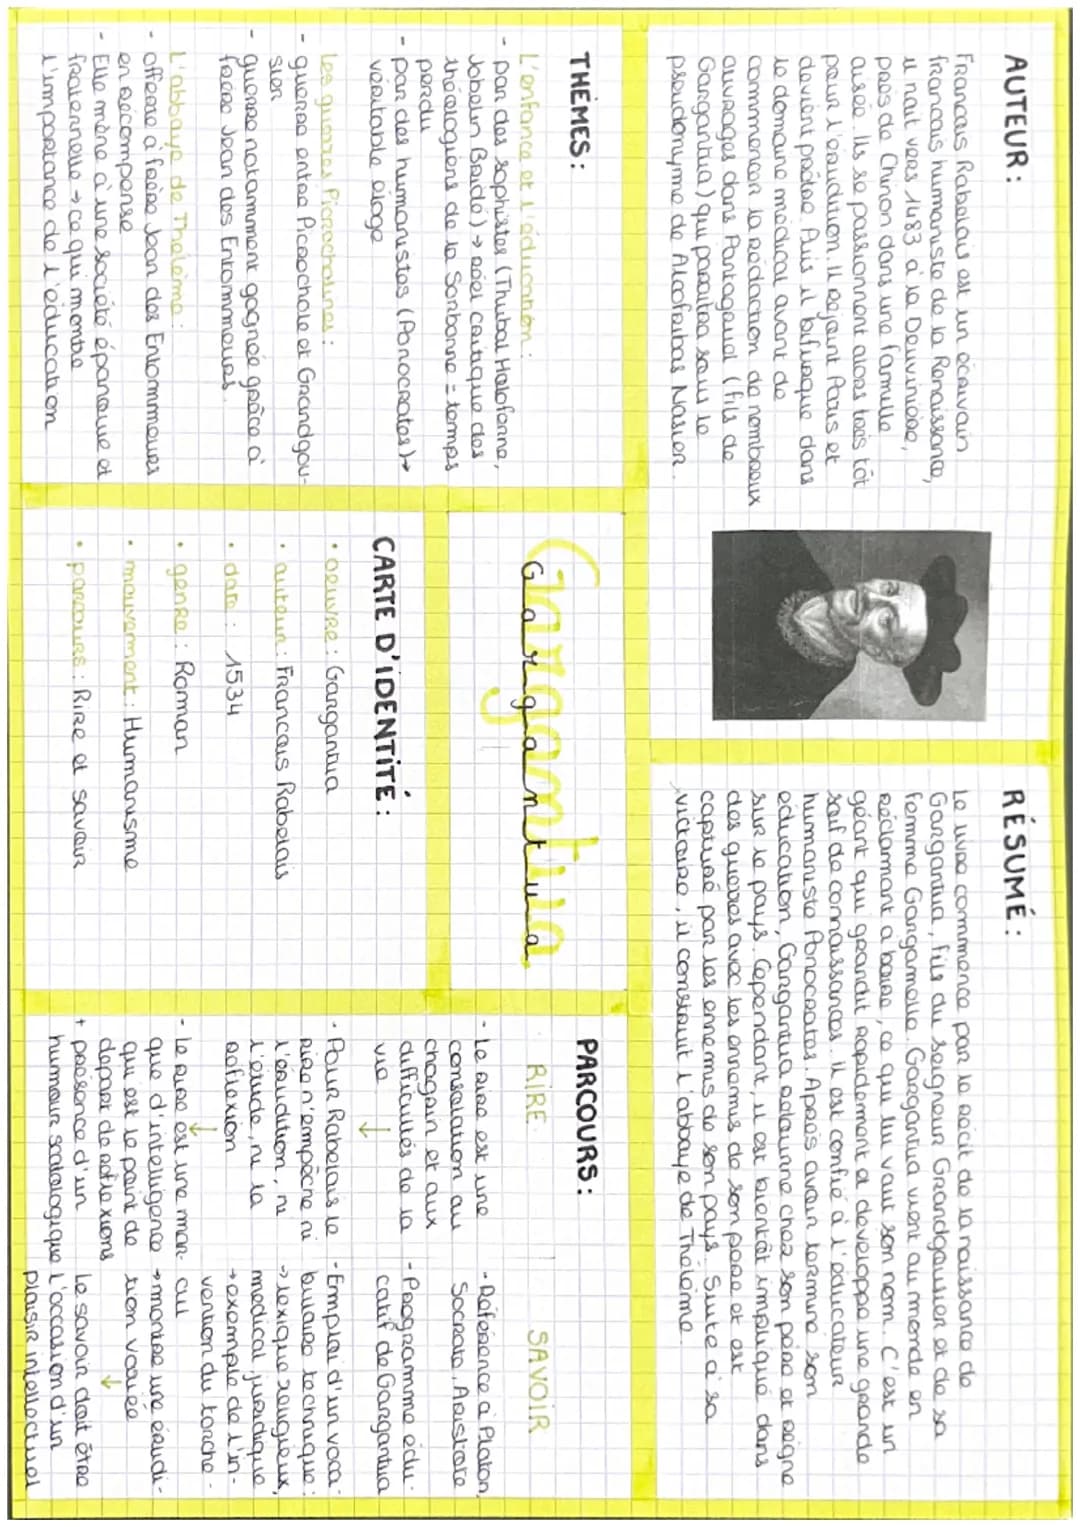 AUTEUR :
Francois Rabelais est un écrivain
francais humaniste de la Renaissance,
il nait vers 1483 à la Deuvinière,
près de Chinon dans une famille
aisée. Ils se passionnent alors très tôt
pour l'érudition. Il rejoint Paris et
devient prêtre. Puis il bifurque dans
le domaine médical avant de
commencer la rédaction de nombeaux
ouvrages dans Pantagruel (fils de
Gargantua) qui paraitra sous le
pseudonyme de Alcofribas Nasier.
RÉSUMÉ :
Le livre commence par le récit de la naissance de
Gargantua, fils du seigneur Grandgousier et de sa
femme Gargamelle. Gargantua vient au monde en
réclamant a boire, ce qui lui vaut son nom. C'est un
géant qui grandit rapidement et développe une grande
soif de connaissances. Il est confié à l'éducateur
humaniste Ponocrates. Après avoir terminé son
éducation, Gargantua retourne chez son père et règne
sur le pays. Cependant, il est bientôt impliqué dans
des guerres avec les ennemis de son père et est
capturé par les ennemis de son pays. Suite à sa
victoire, il construit l'abbaye de Thélème.
THÈMES :
L'enfance et l'éducation :
- par des sophistes (Thubal Holoferne,
Jobelin Bridé) → réel critique des
théologiens de la Sorbonne = temps
perdu
- par des humanistes (Ponocrates) →
véritable éloge
Les guerres Picrocholines :
- guerre entre Picrochole et Grandgou-
sier
- guerre notamment gagnée grâce à
frère Jean des Entommeures.
L'abbaye de Thélème :
- offerte a frère Jean des Entommeures
en récompense
- Elle mène à une société épanouie et
fraternelle → ce qui montre
l'importance de l'éducation
Gargantua
Gargantua
CARTE D'IDENTITÉ :
• oeuvre : Gargantua
• auteur : Francois Rabelais
• date : 1534
• genre : Roman
• mouvement : Humanisme
• parcours : Rire et savoir
PARCOURS :
RIRE
- Le rire est une
consolation au
chagrin et aux
difficultés de la
vie ↓
- Pour Rabelais le
rire n'empêche ni
l'érudition, ni
l'étude, ni la
réflexion
↓
- le rire est une mar-
que d'intelligence
qui est le point de
départ de réflexions
+ présence d'un
humour scatologique
SAVOIR
- Référence à Platon,
Socrate, Aristote
- Programme édu-
catif de Gargantua
- Emploi d'un voca-
bulaire technique :
→ lexique religieux,
médical, juridique
→ exemple de l'in-
vention du torche-
cul
→ montre une érudi-
tion variée
↓
le savoir doit être
l'occasion d'un
plaisir intellectuel